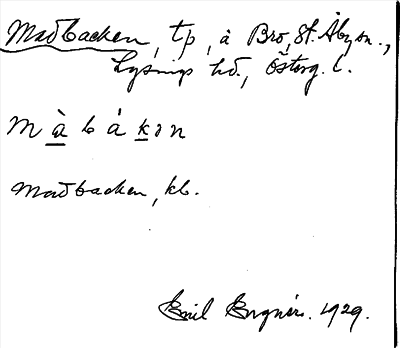 Madbacken, tp, å Bro, St. Åby sn.,
Lysings hd., Österg. l.
m à b á k ə n
madbacken, kb.
Emil Bognér. 1929.